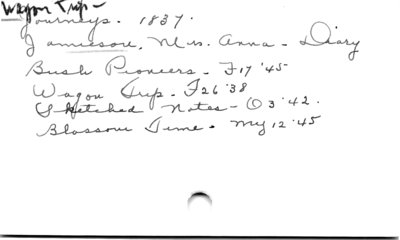 Wagon Trip -
Journeys. 1837.
Jamieson, Mrs. Anna - Diary
Bush Pioneers - F 17 '45
Wagon Trip - F 26 '38
Sketched Notes - O 3 '42.
Blossom Time - My 12 '45